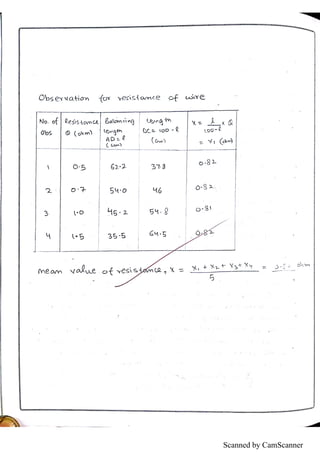 Observation for resistance of wire
No. of Obs Resistance Q (ohm) Balancing length AD = l (cm) Length DC = 100 - l (cm) X = l / 100-l x Q = X1 (ohm)
1 0.5 62.2 37.8 0.82
2 0.7 54.0 46 0.82
3 1.0 45.2 54.8 0.81
4 1.5 35.5 64.5 0.82
mean value of resistance, X = X1 + X2 + X3 + X4 / 5 = ohm
Scanned by CamScanner